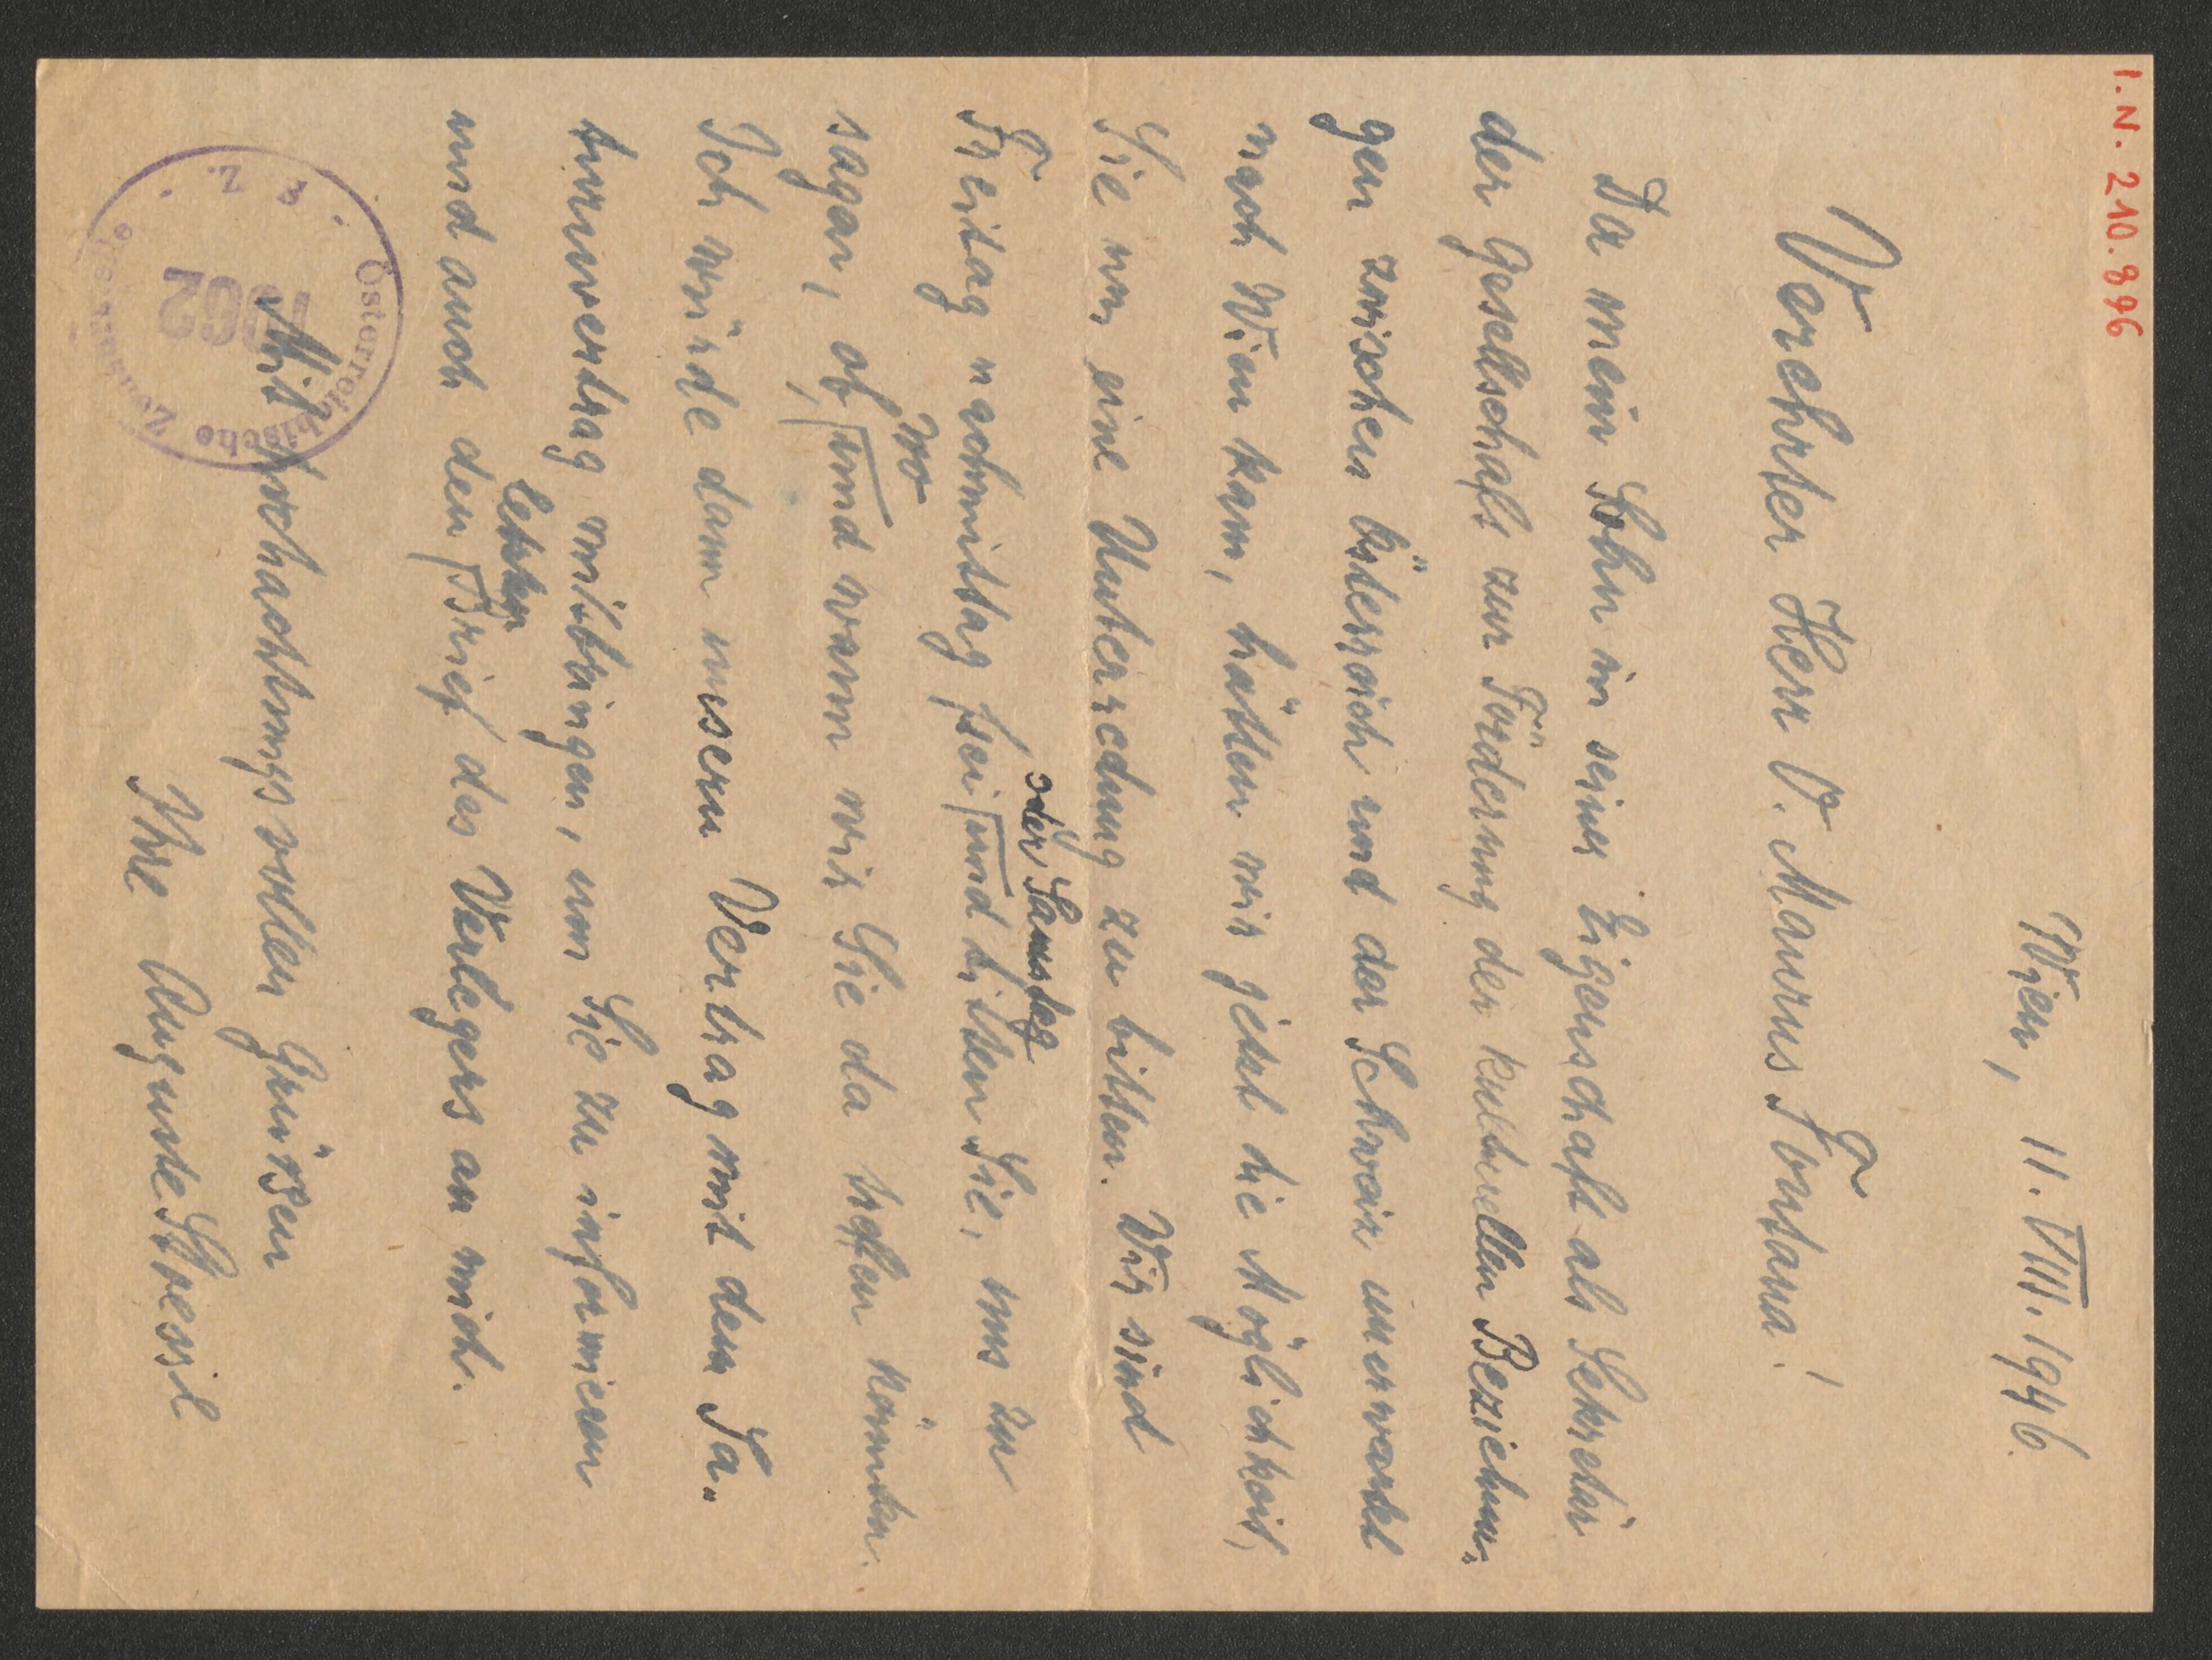 I.N. 210.896
Wien, 11. VIII. 1946.
Verehrter Herr O. Maurus Fontana!
Da mein Sohn in seiner Eigenschaft als Sekretär
der Gesellschaft zur Förderung der kulturellen Beziehun-
gen zwischen Österreich und der Schweiz unerwartet
nach Wien kam, hätten wir jetzt die Möglichkeit,
Sie um eine Unterredung zu bitten. Wir sind
oder Samstag
Freitag nachmittag frei und bitten Sie, uns zu
wo
sagen, ob, und wann wir Sie da treffen könnten.
Ich würde dann unsern Vertrag mit dem Sa-
turnverlag mitbringen, um Sie zu informieren
letzten
und auch den Brief des Verlegers an mich.
Mit hochachtungsvollen Grüßen
Ihre Auguste Stoessl
Österreichische